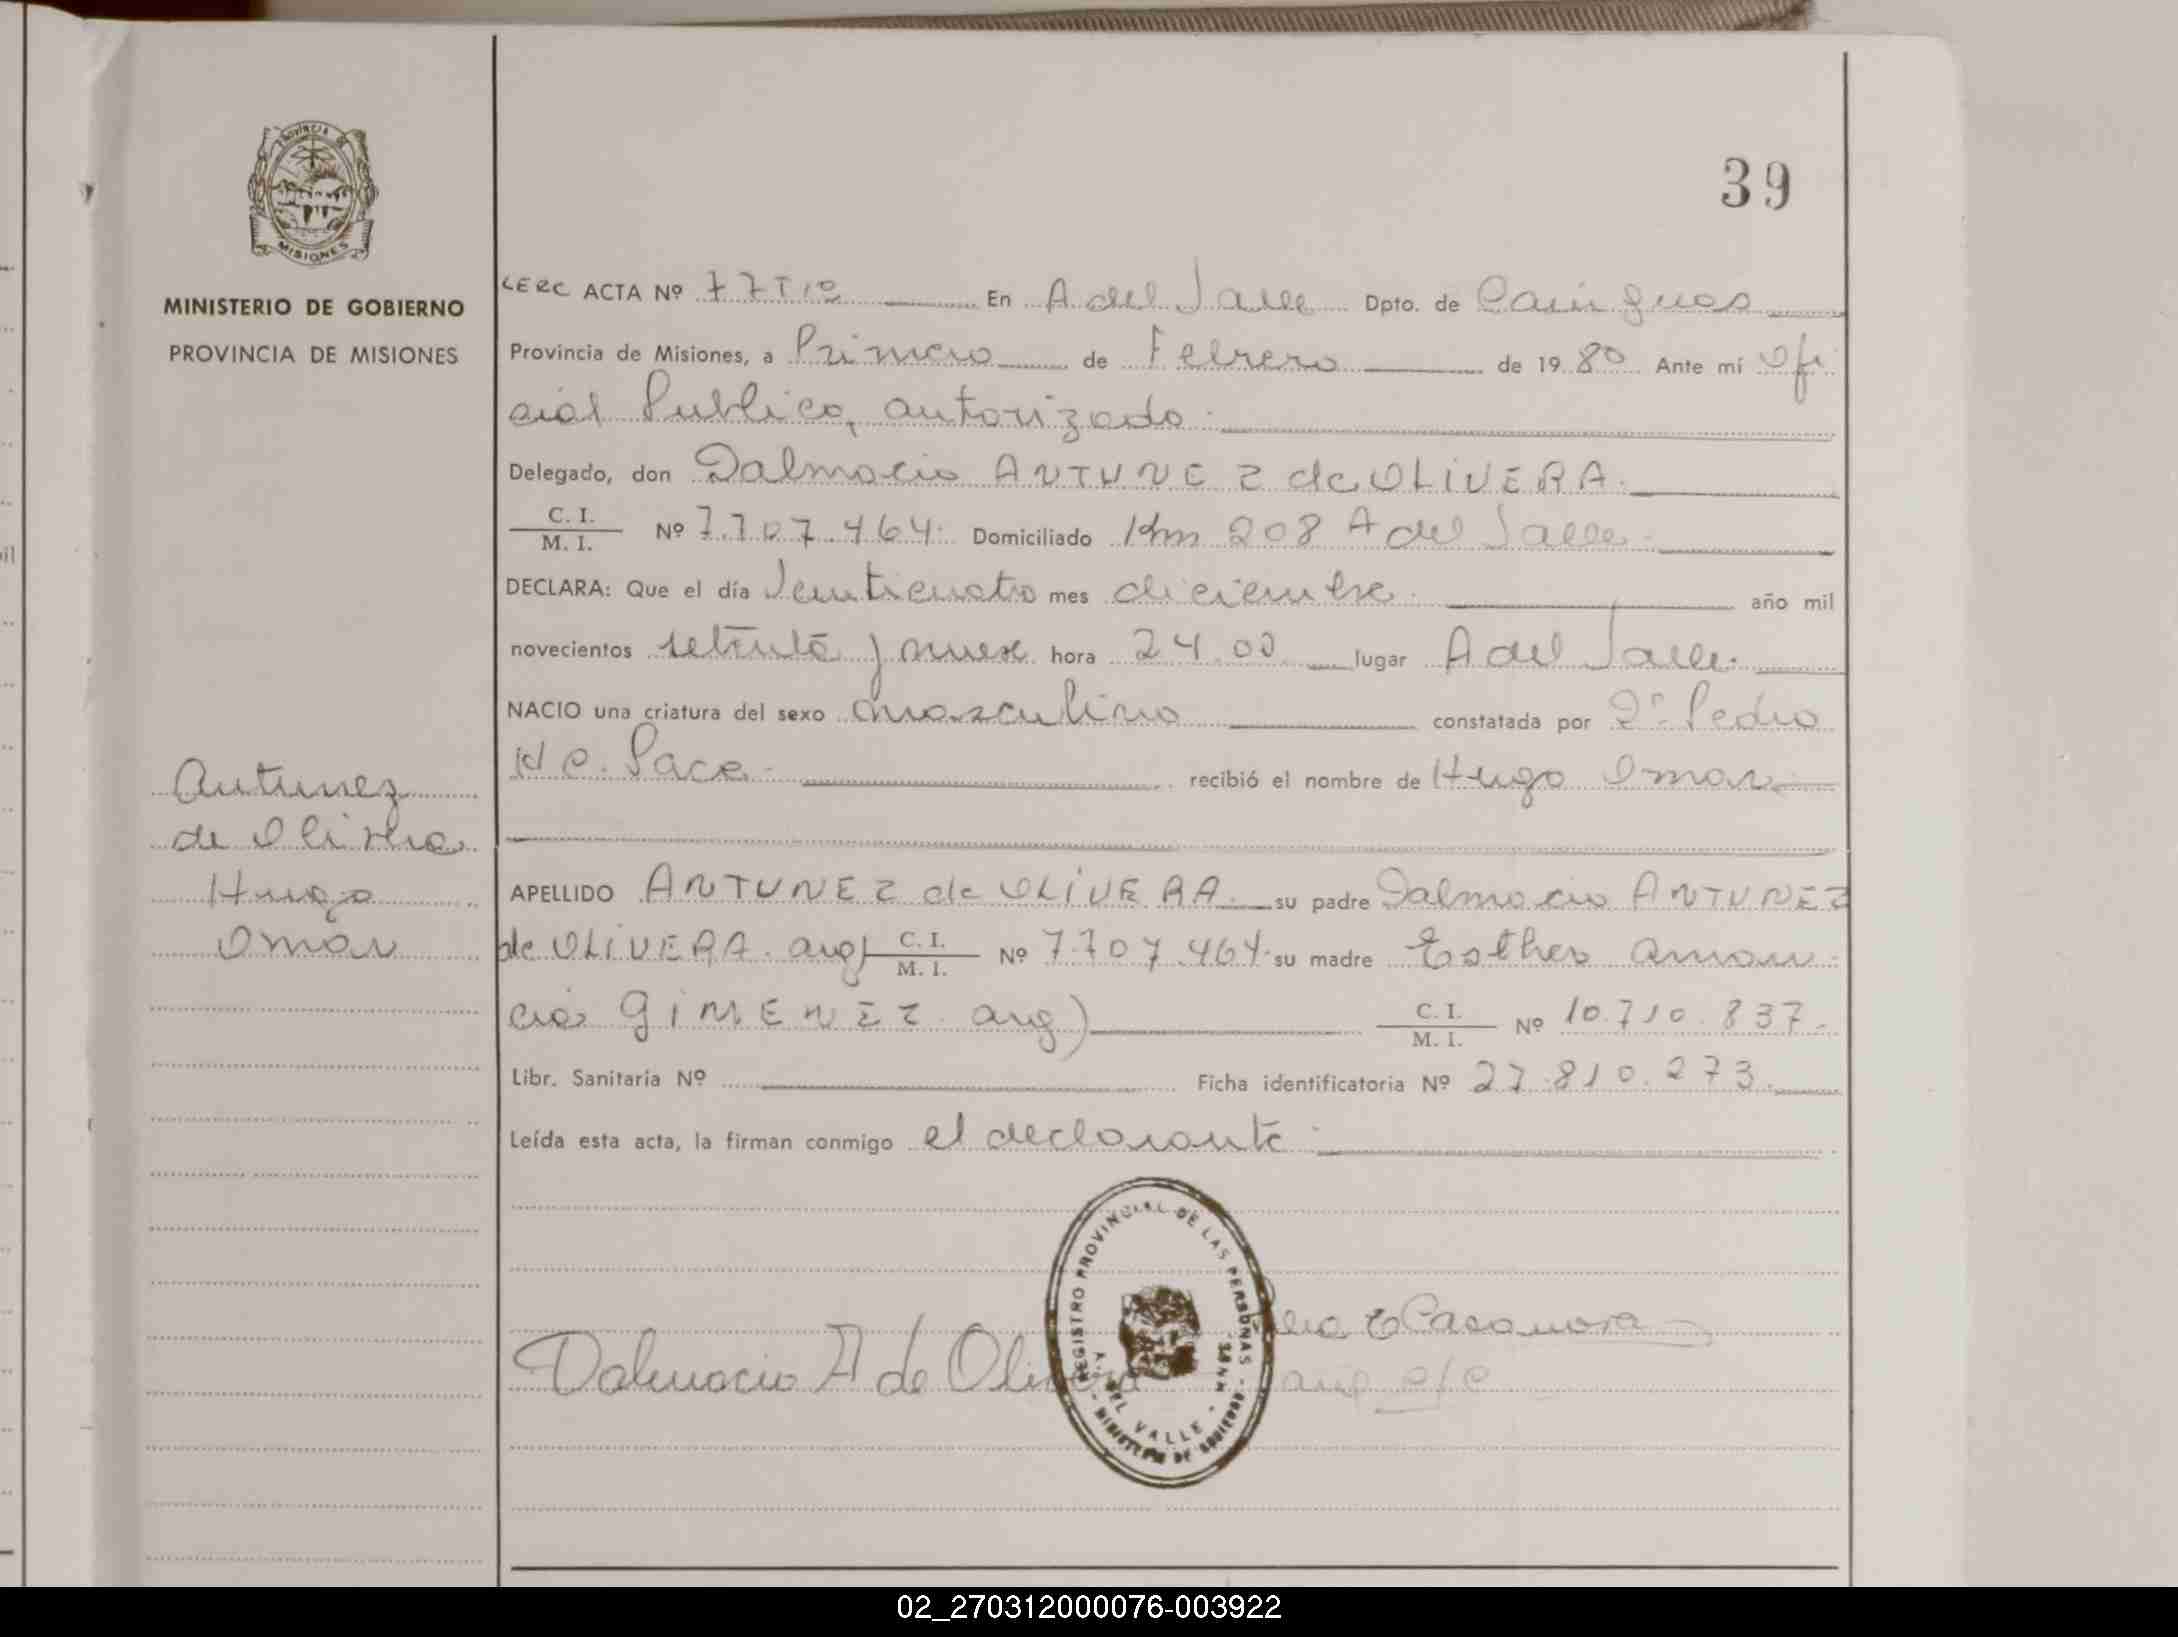 39
PROVINCIA
MISIONES
MINISTERIO DE GOBIERNO
PROVINCIA DE MISIONES
ACTA Nº 77 T 1º En A del Valle Dpto. de Cainguas
Provincia de Misiones, a Primero de Febrero de 1980 Ante mí Ofi
cial Publico, autorizado.
Delegado, don Dalmacio ANTUNEZ de OLIVERA.
C. I.
M. I. Nº 7.707.464. Domiciliado Km 208 A del Valle.
DECLARA: Que el día Venticuatro mes diciembre. año mil
novecientos setenta y nueve hora 24.00 lugar A del Valle.
NACIO una criatura del sexo masculino constatada por Pedro
H C. Pace. recibió el nombre de Hugo Omar.
Antunez
de Olivera
Hugo
Omar
APELLIDO ANTUNEZ de OLIVERA. su padre Dalmacio ANTUNEZ
de OLIVERA. arg) C. I.
M. I. Nº 7.707.464. su madre Esther Aman
cia GIMENEZ. arg) C. I.
M. I. Nº 10.710.837.
Libr. Sanitaria Nº Ficha identificatoria Nº 27.810.273.
Leída esta acta, la firman conmigo el declarante.
REGISTRO PROVINCIAL DE LAS PERSONAS
A. DEL VALLE
MINISTERIO DE GOBIERNO
Dalmacio A de Olivera
Casanova
02_270312000076-003922